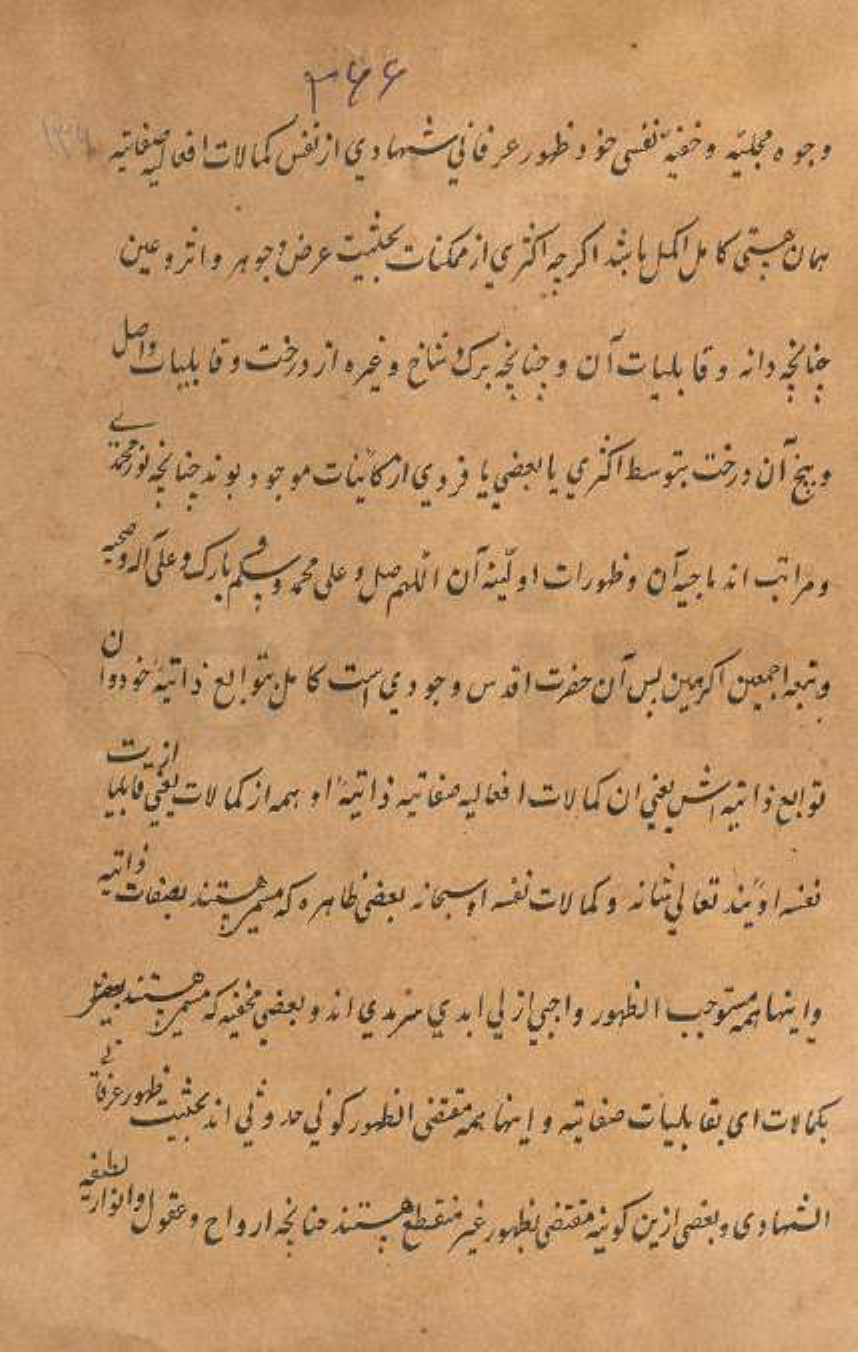 ۳۶۶
وجوه مجلیّه و خفیّه نفسی خود ظهور عرفانی شهادی از نفس کمالات افعالیه صفاتیه
همان هستی کامل اکمل باشد اکرچه اکثری از ممکنات بحثیت عرض و جوهر و اثر و عین
چنانچه دانه و قابلیات آن و چنانچه برک و شاخ و غیره از درخت و قابلیات و اصل
و بیخ آن درخت بتوسط اکثری یا بعضی یا فردی از مکاینات موجود بوند چنانچه نور محمدی
و مراتب اندماجیه آن و ظهورات اولیّنه آن اللهم صل و علی محمد و سلم و بارک و علی آله و صحبه
و تبعه اجمعین اکرمین بس آن حضرت اقدس وجودی است کامل بتوابع ذاتیهٔ خود و ان
توابع ذاتیه اش یعنی ان کمالات افعالیه صفاتیه ذاتیهٔ او همه از کمالات یعنی از قابلیات
نفسه اویند تعالی شانه و کمالات نفسه او سبحانه بعضی ظاهره که مسمی هستند بصفات ذاتیه
و اینها همه مستوجب الظهور واجبی ازلی ابدی سرمدی اند و بعضی مخفیه که مسمی هستند
بکمالات ای بقابلیات صفاتیه و اینها همه مقتضی الظهور کونی حدوثی اند بحثیت ظهور عرفانی
الشهادی و بعضی ازین کونیه مقتضی بظهور غیر منقطع هستند چنانچه ارواح و عقول و انوار لطفیه